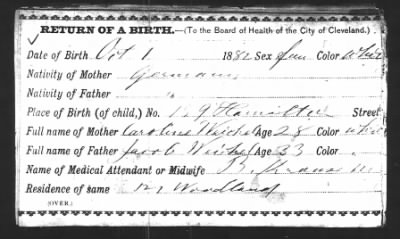 RETURN OF A BIRTH.—(To the Board of Health of the City of Cleveland.)
Date of Birth Oct 1 1882 Sex fem Color white
Nativity of Mother German
Nativity of Father "
Place of Birth (of child,) No. Hamilton Street
Full name of Mother Caroline Age 28 Color white
Full name of Father Jacob Age 33 Color "
Name of Medical Attendant or Midwife
Residence of same Woodland
(OVER.)